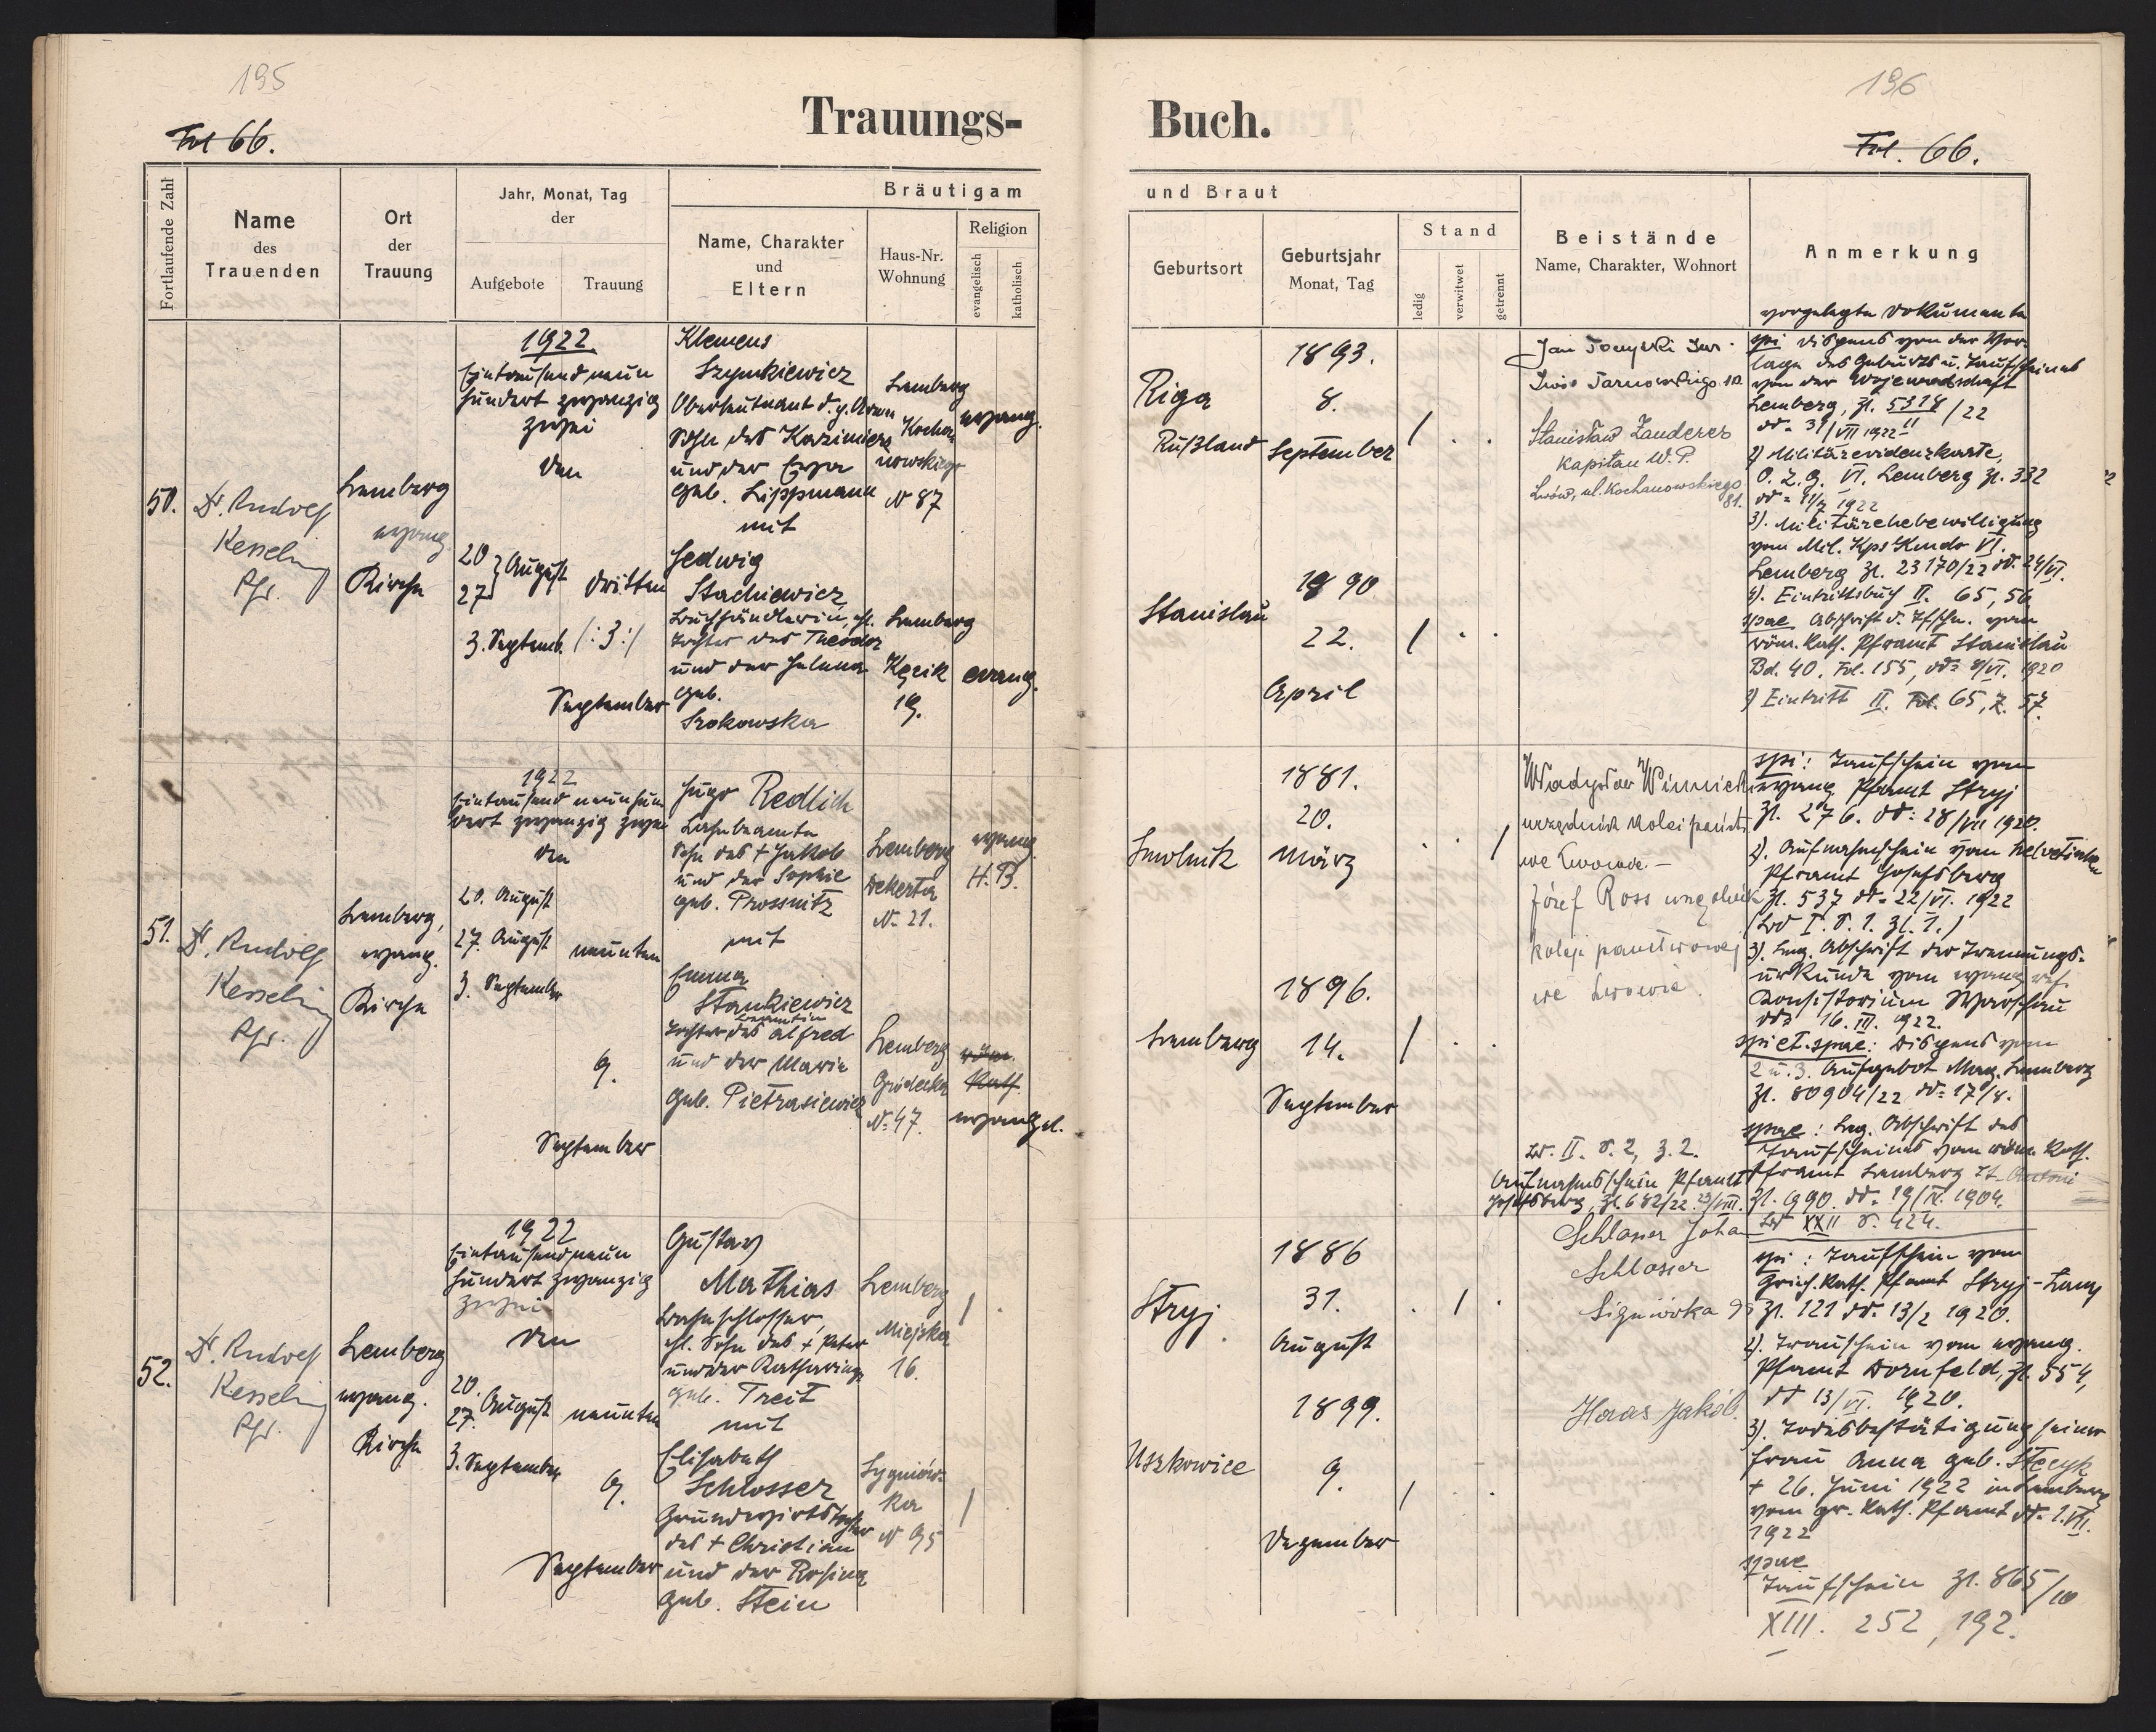 195
Fol 66.
Trauungs-
Fortlaufende Zahl
Name
des
Trauenden
Ort
der
Trauung
Jahr, Monat, Tag
der
Aufgebote
Trauung
Bräutigam
Name, Charakter
und
Eltern
Haus-Nr.
Wohnung
Religion
evangelisch
katholisch
50.
Dr. Rudolf
Kesselring
Pfr.
Lemberg
evang.
Kirche
1922
Eintausend neun
hundert zwanzig
zwei
den
20
27 August
3. Septemb.
dritten
/:3:/
September
Klemens
Szymkiewicz
Oberleutnant d. p. Armee
Sohn des Kazimierz
und der Ewa
geb. Lippmann
mit
Hedwig
Stachiewicz
Buchhändlerin, ehl.
Tochter des Theodor
und der Helena
geb.
Srokowska
Lemberg
Kocha-
nowskiego
N 87
Lemberg
Kęcik
19.
evang.
evang.
51.
Dr. Rudolf
Kesselring
Pfr.
Lemberg,
evang.
Kirche
1922
Eintausend neunhun
dert zwanzig zwei
den
20. August
27. August
3. September
neunten
9.
September
Hugo Redlich
Bahnbeamte
Sohn des + Jakob
und der Sophie
geb. Prossnitz
mit
Emma
Stankiewicz
Beamtin
Tochter des Alfred
und der Maria
geb. Pietrasiewicz
Lemberg
Dekerta
N. 21.
Lemberg
Gródecka
N. 47.
evang.
H. B.
röm.
Kath.
evangel.
52.
Dr. Rudolf
Kesselring
Pfr.
Lemberg
evang.
Kirche
1922
Eintausendneun
hundert zwanzig
zwei
den
20.
27. August
3. September
neunten
9.
September
Gustav
Mathias
Bahnschlosser,
ehl. Sohn des + Peter
und der Katharina
geb. Treit
mit
Elisabeth
Schlosser
Grundwirtstochter
des + Christian
und der Rosina
geb. Stein
Lemberg
Miejska
16.
Sygniów-
ka
N 95
/ .
/
196
Fol. 66.
Buch.
und Braut
Geburtsort
Geburtsjahr
Monat, Tag
Stand
ledig
verwitwet
getrennt
Beistände
Name, Charakter, Wohnort
Anmerkung
vorgelegte Dokumente
Riga
Rußland
1893.
8.
September
/ . .
Stanislau
1890
22.
April
/ . .
Stanisław Zauderer
Kapitan W. P.
Lwów, ul. Kochanowskiego
81.
spi Dispens von der Vor-
lage des Geburts u. Taufscheines
von der Wojewodschaft
Lemberg, Zl. 5318/22
dd. 31/VII 1922
2) Militärevidenzkarte,
O. Z. G. VI. Lemberg Zl. 332
3). Militärehebewilligung
vom Mil. Kps Kmdo VI.
Lemberg Zl. 23170/22 dd. 24/VI.
4). Eintrittsbuch II. 65, 56
spae Abschrift d. Tfschn. vom
röm. kath. Pframt Stanislau
Bd. 40. Fol. 155, dd. 8/VI. 1920
2) Eintritt II. Fol. 65, Z. 57.
Smolnik
1881.
20.
März
. . /
Lemberg
1896.
14.
September
/ . .
Władysław Winnicki
urzędnik kolei państw.
we Lwowie. –
Józef Ross urzędnik
kolei państwowej
we Lwowie.
Bd. II. S. 2, Z. 2.
Aufnahmsschein Pframt
Josefsberg, Zl. 682/22. 23/VIII.
spi: Taufschein vom
evang. Pframt Stryj
Zl. 276. dd: 28/VII 1920.
2). Aufnahmschein vom Helvetischen
Pframt Josefsberg
Zl. 537 dd. 22/VI. 1922
(Bd I. S. 1. Zl. 1.)
3). Leg. Abschrift der Trennungs-
urkunde vom evang. ref.
Konsistorium Warschau
dd. 16. III. 1922.
spi et. spae: Dispens vom
2 u. 3. Aufgebot Mag. Lemberg
Zl. 80904/22 dd. 17/8.
spae: Leg. Abschrift des
Taufscheines vom röm. kath.
Pframt Lemberg St. Antoni
Zl. 990. dd. 19/IV. 1904.
Bd XXII S. 424.
Stryj
1886
31.
August
. / .
Uszkowice
1899.
9.
Dezember
/ . .
Schlosser Johan
Schlosser
Signiówka 95
Haas Jakób.
spi: Taufschein vom
griech. kath. Pfamt Stryj-Łany
Zl. 121 dd. 13/2 1920.
2). Trauschein vom evang.
Pfamt Dornfeld, Zl. 554,
dd 13/VI. 1920.
3). Todesbestätigung seiner
Frau Anna geb. Stecyk
+ 26. Juni 1922 in Lemberg
vom gr. kath. Pfamt dd. 1. VII.
1922
spae
Taufschein Zl. 865/10
XIII. 252, 192.